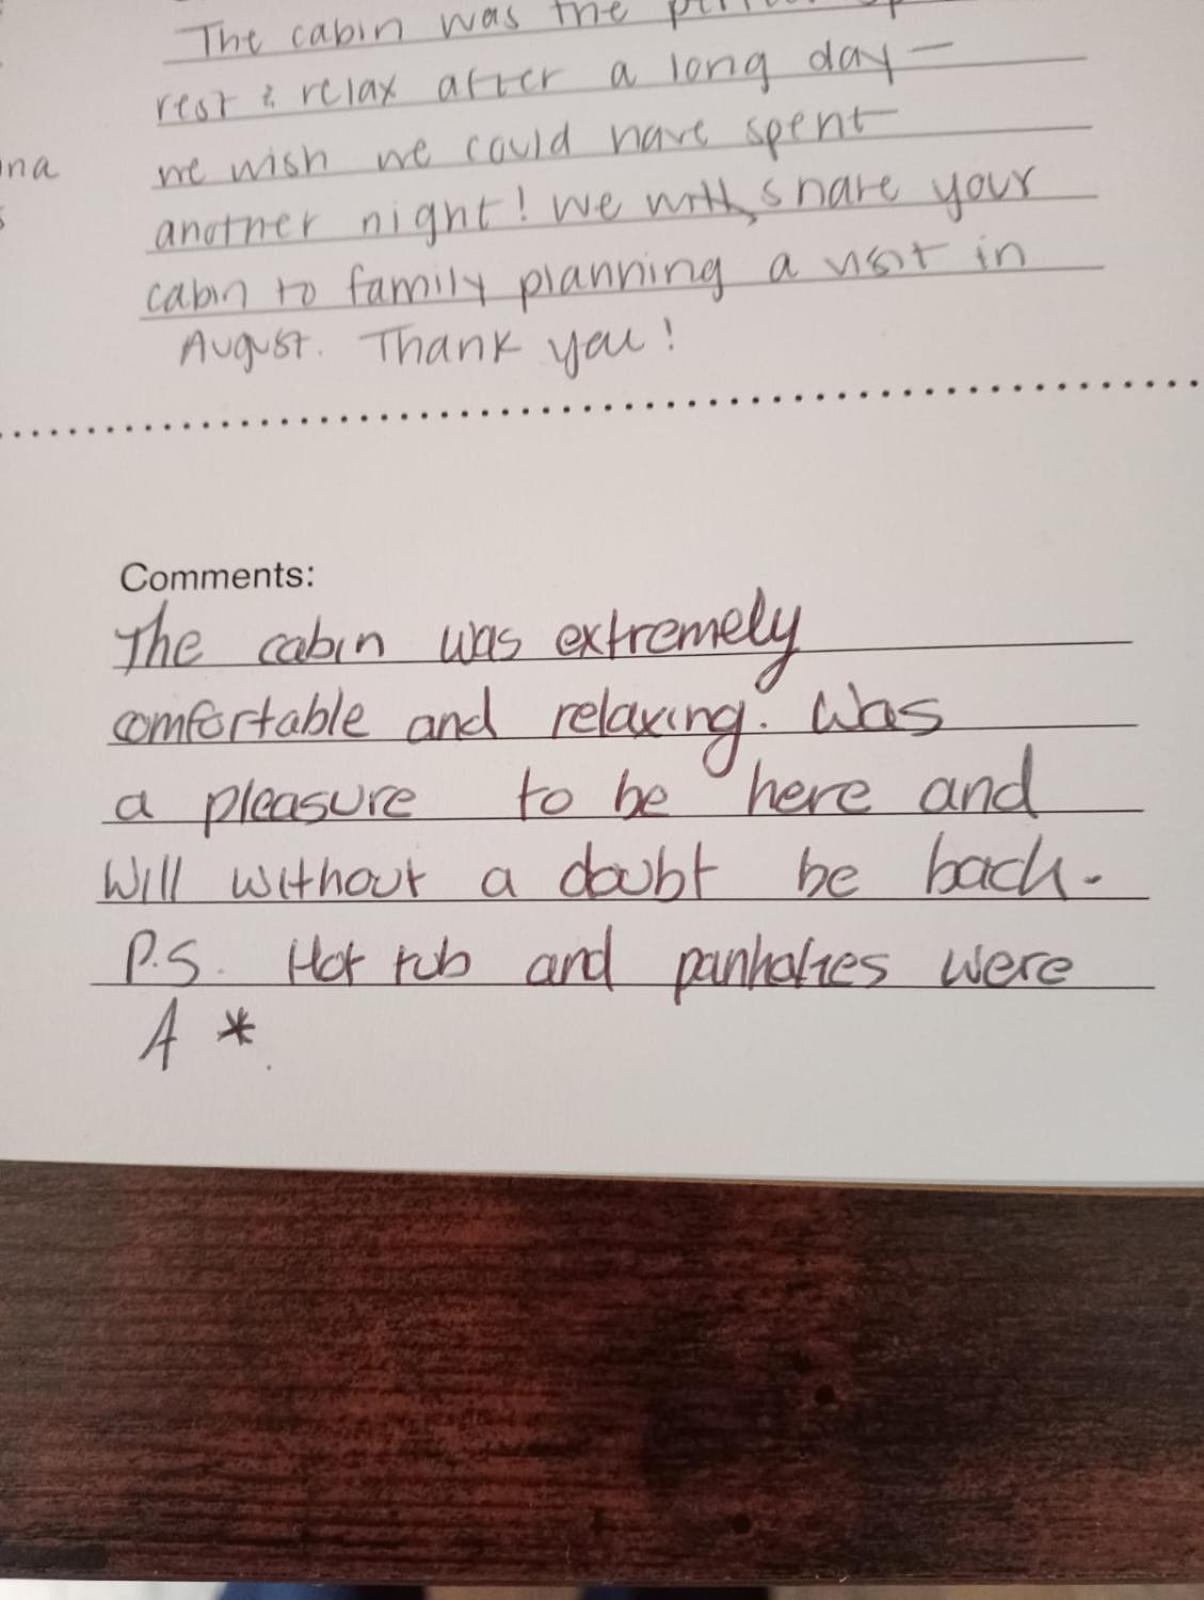 The cabin was the
rest & relax after a long day —
na
we wish we could have spent
another night! We will share your
cabin to family planning a visit in
August. Thank you!
Comments:
The cabin was extremely
comfortable and relaxing. Was
a pleasure to be here and
Will without a doubt be back.
P.S. Hot tub and were
A *.